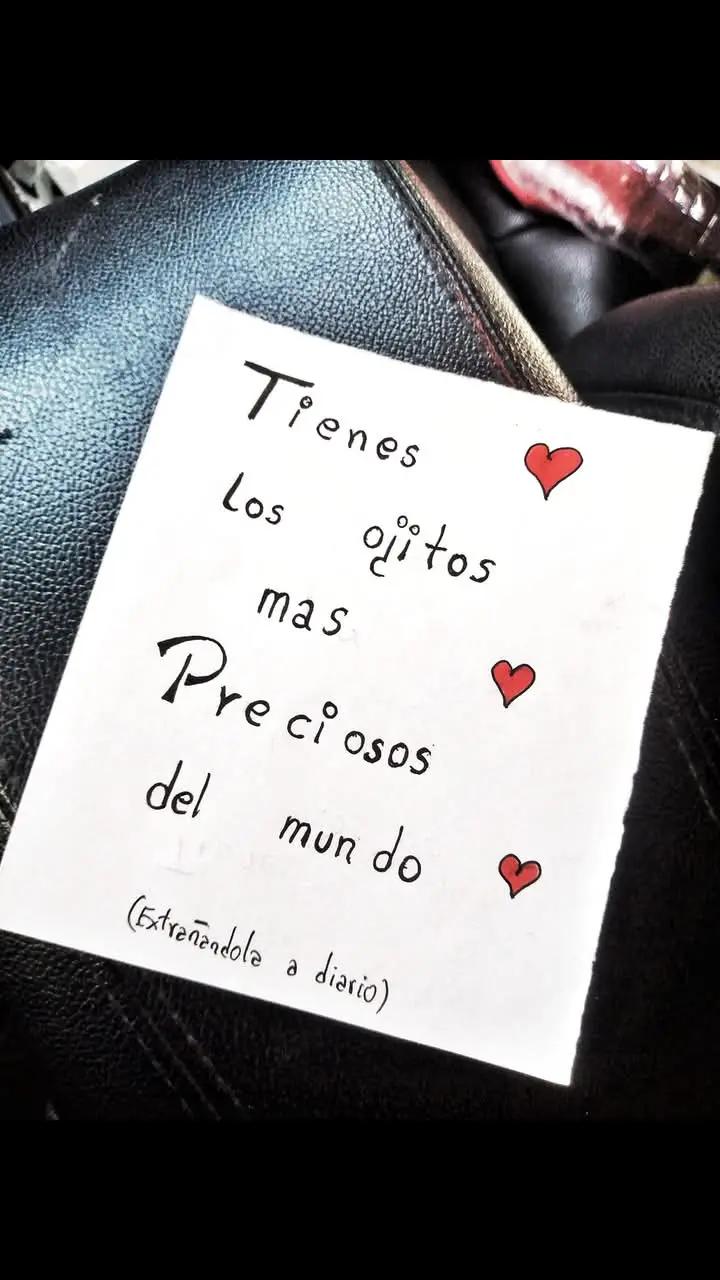 Tienes
Los ojitos
mas
Preciosos
del mundo
(Extrañandola a diario)